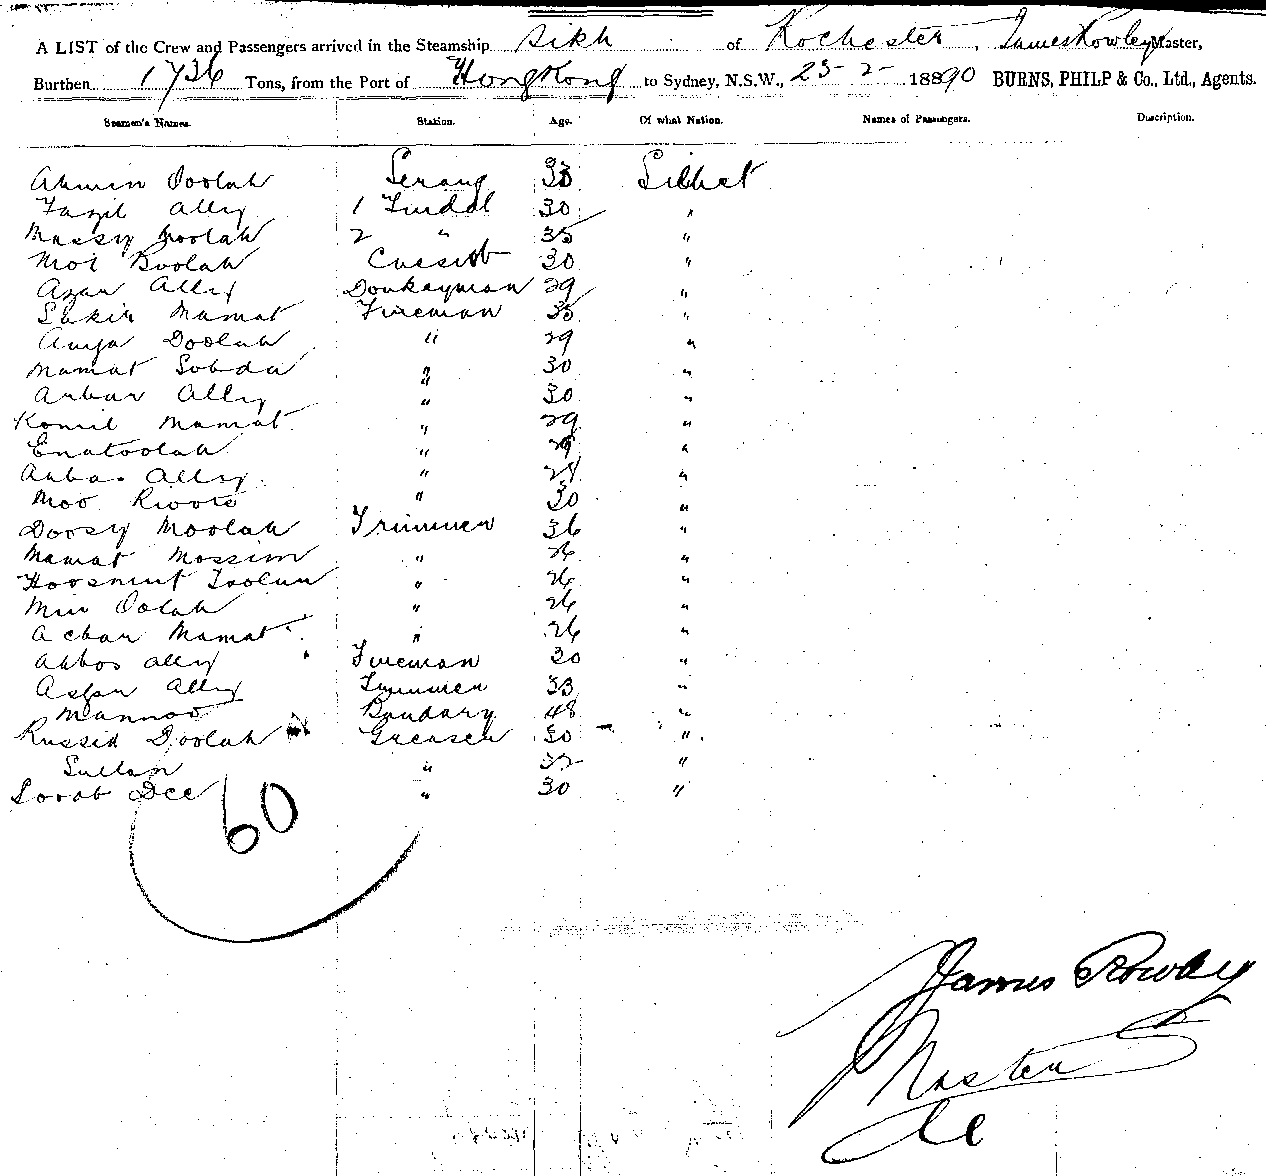 A LIST of the Crew and Passengers arrived in the Steamship Sikh of Rochester, James Rowley Master,
Burthen 1736 Tons, from the Port of HongKong to Sydney, N.S.W., 25-2-1890 BURNS, PHILP & Co., Ltd., Agents.
Seamen's Names. Station. Age. Of what Nation. Names of Passengers. Discription.
Doolah Serang 33 Silhet
Fazil Ally 1 Tindal 30 "
Mossy Moolah 2 " 35 "
Moi Boolah 30 "
Azar Ally Donkeyman 29 "
Sakir Mamat Fireman 35 "
Doolah " 29 "
Mamat Sobda " 30 "
Ally " 30 "
Komil Mamat " 29 "
Enatoolah " 29 "
Ally " "
Moo " 30 "
Doosy Moolah Trimmer 36 "
Mamat Mossim " 26 "
" 26 "
Oolah " 26 "
Achar Mamat " 26 "
Abbos Ally Fireman 30 "
Asfar Ally Trimmer 33 "
Mannoo Bandary 48 "
Russid Doolah Greaser 30 "
Sultan " 32 "
Sorab Dee " 30 "
60
James Rowley
Master